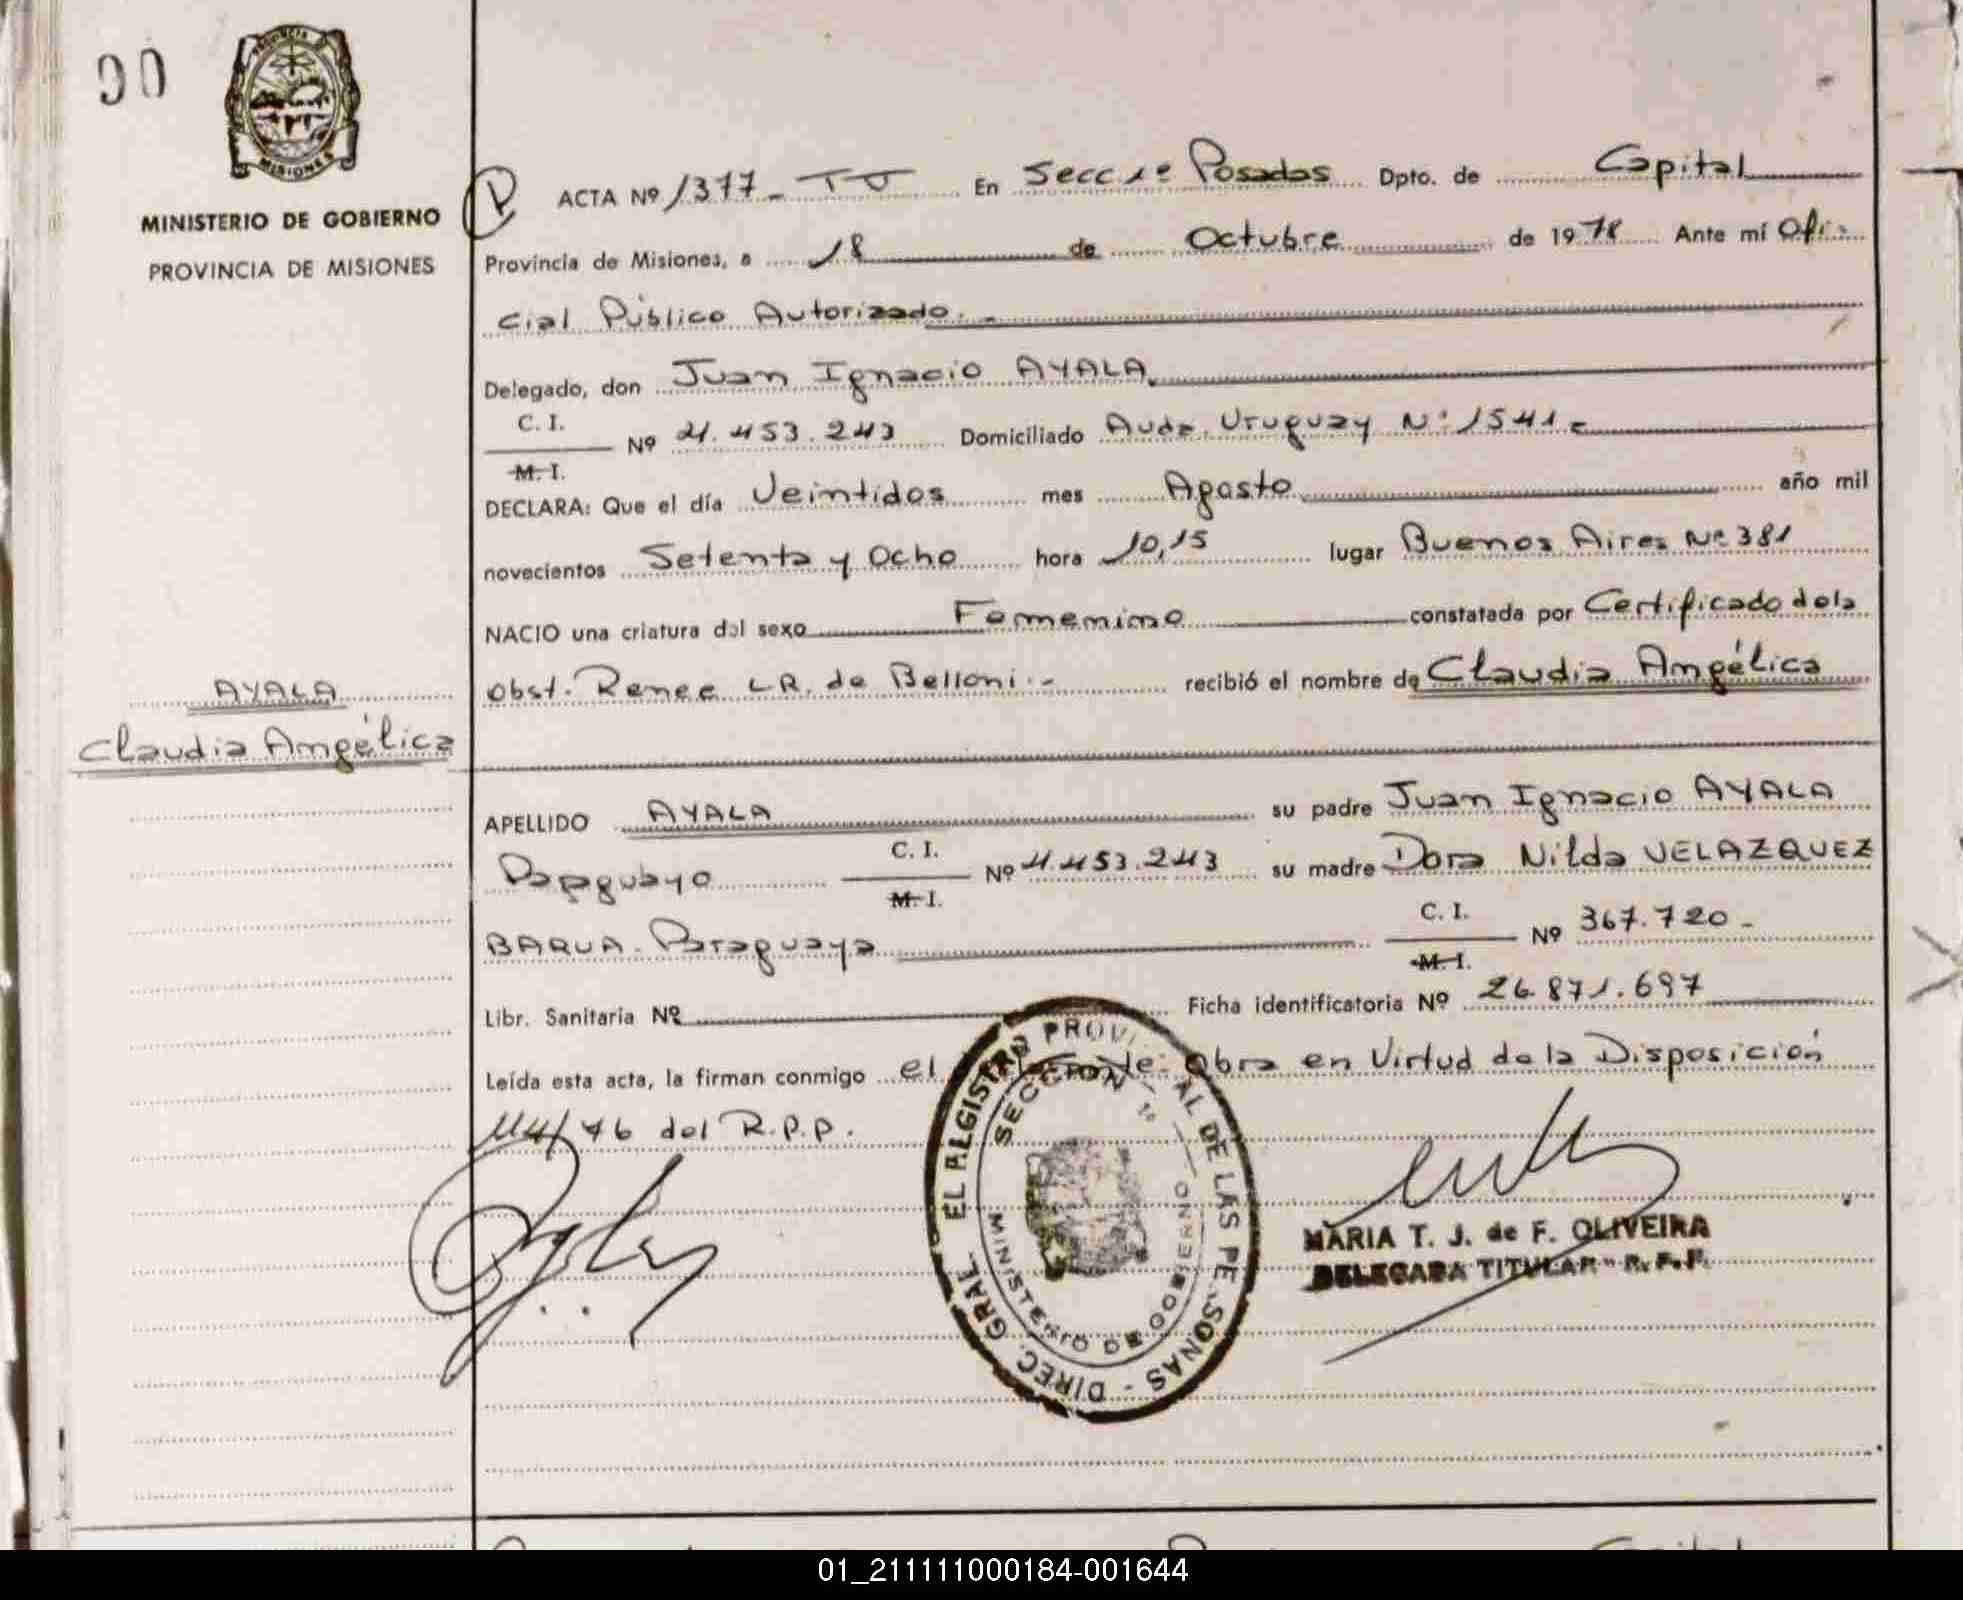 00
PROVINCIA DE
MISIONES
MINISTERIO DE GOBIERNO
PROVINCIA DE MISIONES
ACTA Nº 1377 - TU En Secc 1º Posadas Dpto. de Capital
Provincia de Misiones, a 18 de Octubre de 1978 Ante mí Ofi-
cial Público Autorizado. -
Delegado, don Juan Ignacio AYALA
C. I.
M. I.
Nº 4.453.243 Domiciliado Avda. Uruguay Nº 1541 -
DECLARA: Que el día Veintidos mes Agosto año mil
novecientos Setenta y Ocho hora 10,15 lugar Buenos Aires Nº 381
NACIO una criatura del sexo Femenino constatada por Certificado de la
Obst. Renee L.R. de Belloni.- recibió el nombre de Claudia Angélica
AYALA
Claudia Angélica
APELLIDO AYALA su padre Juan Ignacio AYALA
Paraguayo C. I. M. I. Nº 4.453.243 su madre Dora Nilda VELAZQUEZ
BARUA. Paraguaya C. I. M. I. Nº 367.720 -
Libr. Sanitaria Nº Ficha identificatoria Nº 26.871.697
Leída esta acta, la firman conmigo el Obra en Virtud de la Disposición
114/76 del R.P.P.
DIREC. GRAL. DE LAS PERSONAS -
SECCION 1º
MINISTERIO DE GOBIERNO
MARIA T. J. de F. OLIVEIRA
DELEGADA TITULAR - R. P. P.
01_211111000184-001644